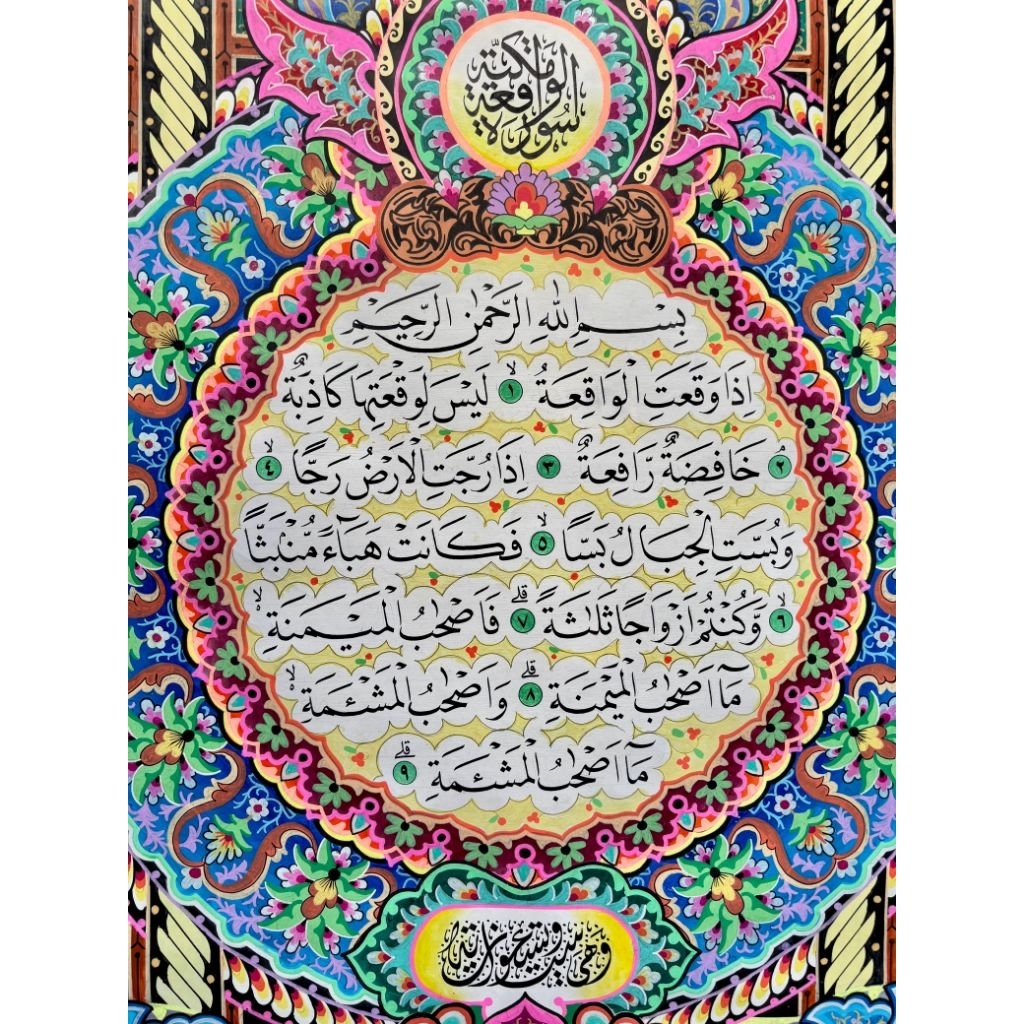 سورة الواقعة مكية
بِسْمِ اللّٰهِ الرَّحْمٰنِ الرَّحِيْمِ
اِذَا وَقَعَتِ الْوَاقِعَةُ ۙ ١ لَيْسَ لِوَقْعَتِهَا كَاذِبَةٌ
٢ خَافِضَةٌ رَّافِعَةٌ ٣ اِذَا رُجَّتِ الْاَرْضُ رَجًّا ۙ ٤
وَبُسَّتِ الْجِبَالُ بَسًّا ۙ ٥ فَكَانَتْ هَبَاۤءً مُّنْۢبَثًّا
ۙ ٦ وَّكُنْتُمْ اَزْوَاجًا ثَلٰثَةً ۗ ٧ فَاَصْحٰبُ الْمَيْمَنَةِ ۙ
مَآ اَصْحٰبُ الْمَيْمَنَةِ ۗ ٨ وَاَصْحٰبُ الْمَشْـَٔمَةِ ۙ
مَآ اَصْحٰبُ الْمَشْـَٔمَةِ ۗ ٩
وهي ست وتسعون آية